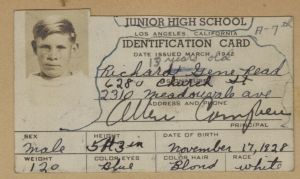 JUNIOR HIGH SCHOOL A-7th
LOS ANGELES, CALIFORNIA
IDENTIFICATION CARD
DATE ISSUED MARCH 1942
13 years old
Richard Gene Read
6280 Church St
2310 Meadowvale ave
ADDRESS AND PHONE
Allen
PRINCIPAL
SEX HEIGHT DATE OF BIRTH
Male 5ft 3in November 17, 1928
WEIGHT COLOR EYES COLOR HAIR RACE
120 Blue Blond white